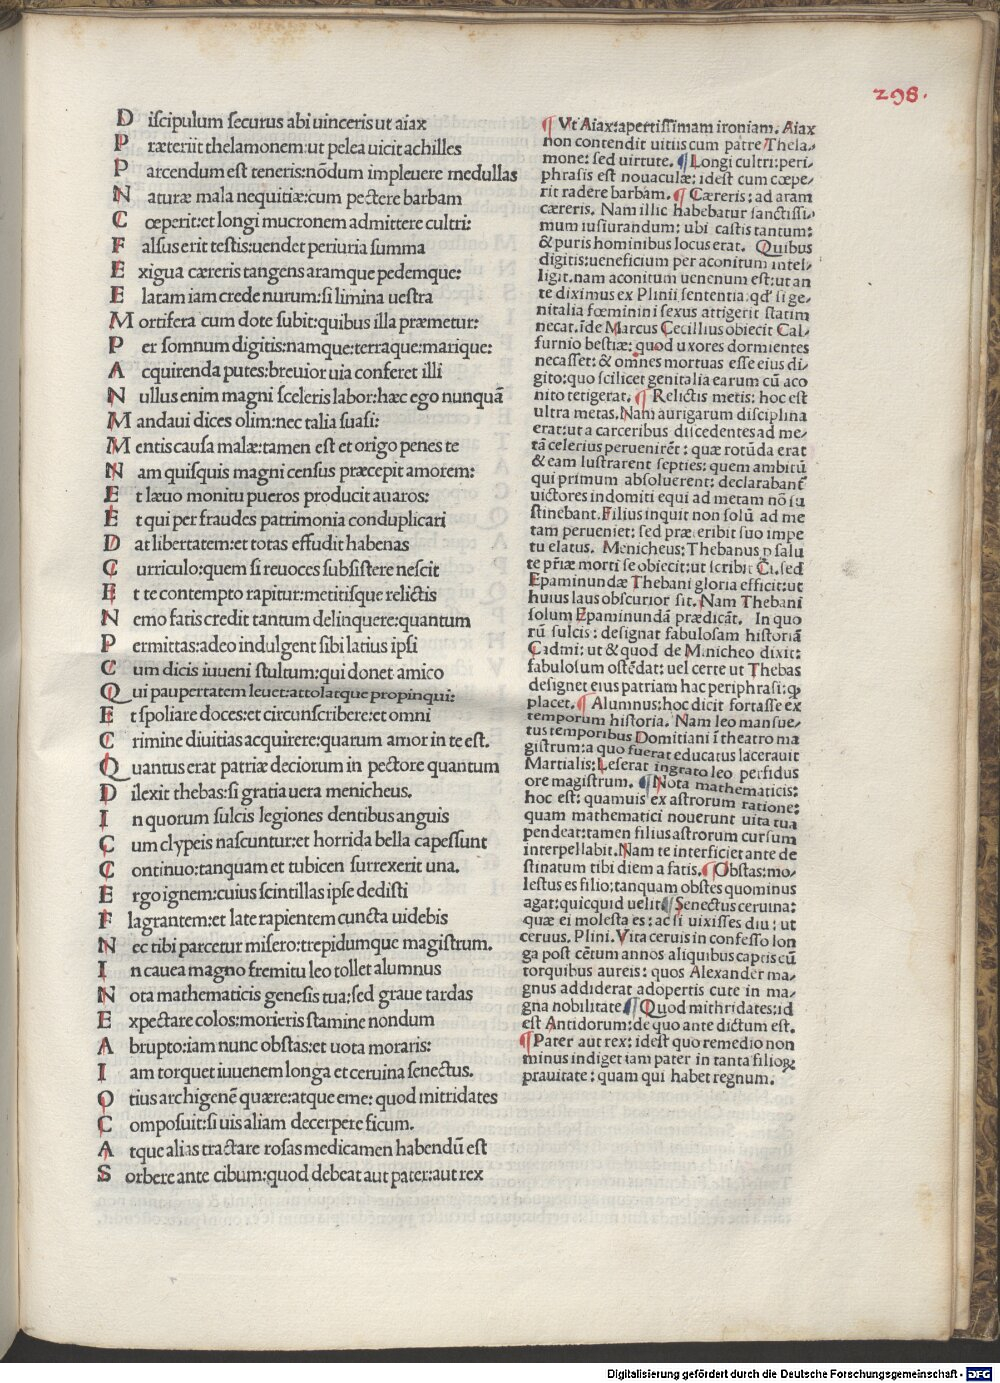 298.
D iſcipulum ſecurus abi uinceris ut aiax
P ræteriit thelamonem:ut pelea uicit achilles
P arcendum est teneris:nōdum impleuere medullas
N aturæ mala nequitiæ:cum pectere barbam
C œperit:et longi mucronem admittere cultri:
F alſus erit teſtis:uendet periuria ſumma
E xigua cæreris tangens aramque pedemque:
E latam iam crede nurum:ſi limina ueſtra
M ortifera cum dote ſubit:quibus illa præmetur:
P er ſomnum digitis:namque:terraque:marique:
A cquirenda putes:breuior uia conferet illi
N ullus enim magni ſceleris labor:hæc ego nunquā
M andaui dices olim:nec talia ſuaſi:
M entis cauſa malæ:tamen est et origo penes te
N am quiſquis magni cenſus præcepit amorem:
E t læuo monitu pueros producit auaros:
E t qui per fraudes patrimonia conduplicari
D at libertatem:et totas effudit habenas
C urriculo:quem ſi reuoces ſubſiſtere neſcit
E t te contempto rapitur:metitiſque relictis
N emo ſatis credit tantum delinquere:quantum
P ermittas:adeo indulgent ſibi latius ipſi
C um dicis iuueni ſtultum:qui donet amico
Q ui paupertatem leuet:attolatque propinqui:
E t ſpoliare doces:et circunſcribere:et omni
C rimine diuitias acquirere:quarum amor in te est.
Q uantus erat patriæ deciorum in pectore quantum
D ilexit thebas:ſi gratia uera menicheus.
I n quorum ſulcis legiones dentibus anguis
C um clypeis naſcuntur:et horrida bella capeſſunt
C ontinuo:tanquam et tubicen ſurrexerit una.
E rgo ignem:cuius ſcintillas ipſe dediſti
F lagrantem:et late rapientem cuncta uidebis
N ec tibi parcetur miſero:trepidumque magiſtrum.
I n cauea magno fremitu leo tollet alumnus
N ota mathematicis geneſis tua:ſed graue tardas
E xpectare colos:morieris ſtamine nondum
A brupto:iam nunc obſtas:et uota moraris:
I am torquet iuuenem longa et ceruina ſenectus.
O tius archigenē quære:atque eme: quod mitridates
C ompoſuit:ſi uis aliam decerpere ficum.
A tque alias tractare roſas medicamen habendū est
S orbere ante cibum:quod debeat aut pater:aut rex
¶ Vt Aiax:apertiſſimam ironiam. Aiax
non contendit uitiis cum patre Thela-
mone: ſed uirtute. ¶Longi cultri:peri-
phraſis est nouaculæ: ideſt cum cœpe-
rit radere barbam. ¶ Cæreris: ad aram
cæreris. Nam illic habebatur ſanctiſſi-
mum iuſiurandum: ubi caſtis tantum:
& puris hominibus locus erat. Quibus
digitis:ueneficium per aconitum intel-
ligit.nam aconitum uenenum est:ut an
te diximus ex Plinii ſententia:qd' ſi ge-
nitalia fœminini ſexus attigerit ſtatim
necat.īde Marcus Cecillius obiecit Cal-
furnio beſtiæ: quod uxores dormientes
necaſſet: & omnes mortuas eſſe eius di-
gito:quo ſcilicet genitalia earum cū aco
nito tetigerat. ¶ Relictis metis: hoc est
ultra metas. Nam aurigarum diſciplina
erat:ut a carceribus diſcedentes ad me-
tā celerius peruenirēt: quæ rotūda erat
& eam luſtrarent ſepties: quem ambitū
qui primum abſoluerent: declarabant̄
uictores indomiti equi ad metam nō ſu
ſtinebant.Filius inquit non ſolū ad me
tam perueniet: ſed præteribit ſuo impe
tu elatus. Menicheus: Thebanus p ſalu
te pr̄iæ morti ſe obiecit:ut ſcribit Ci.ſed
Epaminundæ Thebani gloria efficit:ut
huius laus obſcurior ſit. Nam Thebani
ſolum Epaminundā prædicāt. In quo
rū ſulcis: deſignat fabuloſam hiſtoriā
Cadmi: ut & quod de Manicheo dixit:
fabuloſum oſtēdat: uel certe ut Thebas
deſignet eius patriam hac periphraſi:q
placet. ¶ Alumnus:hoc dicit fortaſſe ex
temporum hiſtoria. Nam leo manſue-
tus temporibus Domitiani ī theatro ma
giſtrum:a quo fuerat educatus lacerauit
Martialis: Leſerat ingrato leo perfidus
ore magiſtrum. ¶Nota mathematicis:
hoc est: quamuis ex aſtrorum ratione:
quam mathematici nouerunt uita tua
pendeat:tamen filius aſtrorum curſum
interpellabit. Nam te interficiet ante de
ſtinatum tibi diem a fatis. ¶Obſtas:mo-
leſtus es filio:tanquam obſtes quominus
agat:quicquid uelit ¶Senectus ceruina:
quæ ei moleſta es: ac ſi uixiſſes diu: ut
ceruus. Plini. Vita ceruis in confeſſo lon
ga post cētum annos aliquibus captis cū
torquibus aureis: quos Alexander ma-
gnus addiderat adopertis cute in ma-
gna nobilitate ¶ Quod mithridates:id
est Antidorum:de quo ante dictum est.
¶Pater aut rex: ideſt quo remedio non
minus indiget iam pater in tanta filioꝝ
prauitate: quam qui habet regnum.
Digitalisierung gefördert durch die Deutsche Forschungsgemeinschaft - DFG